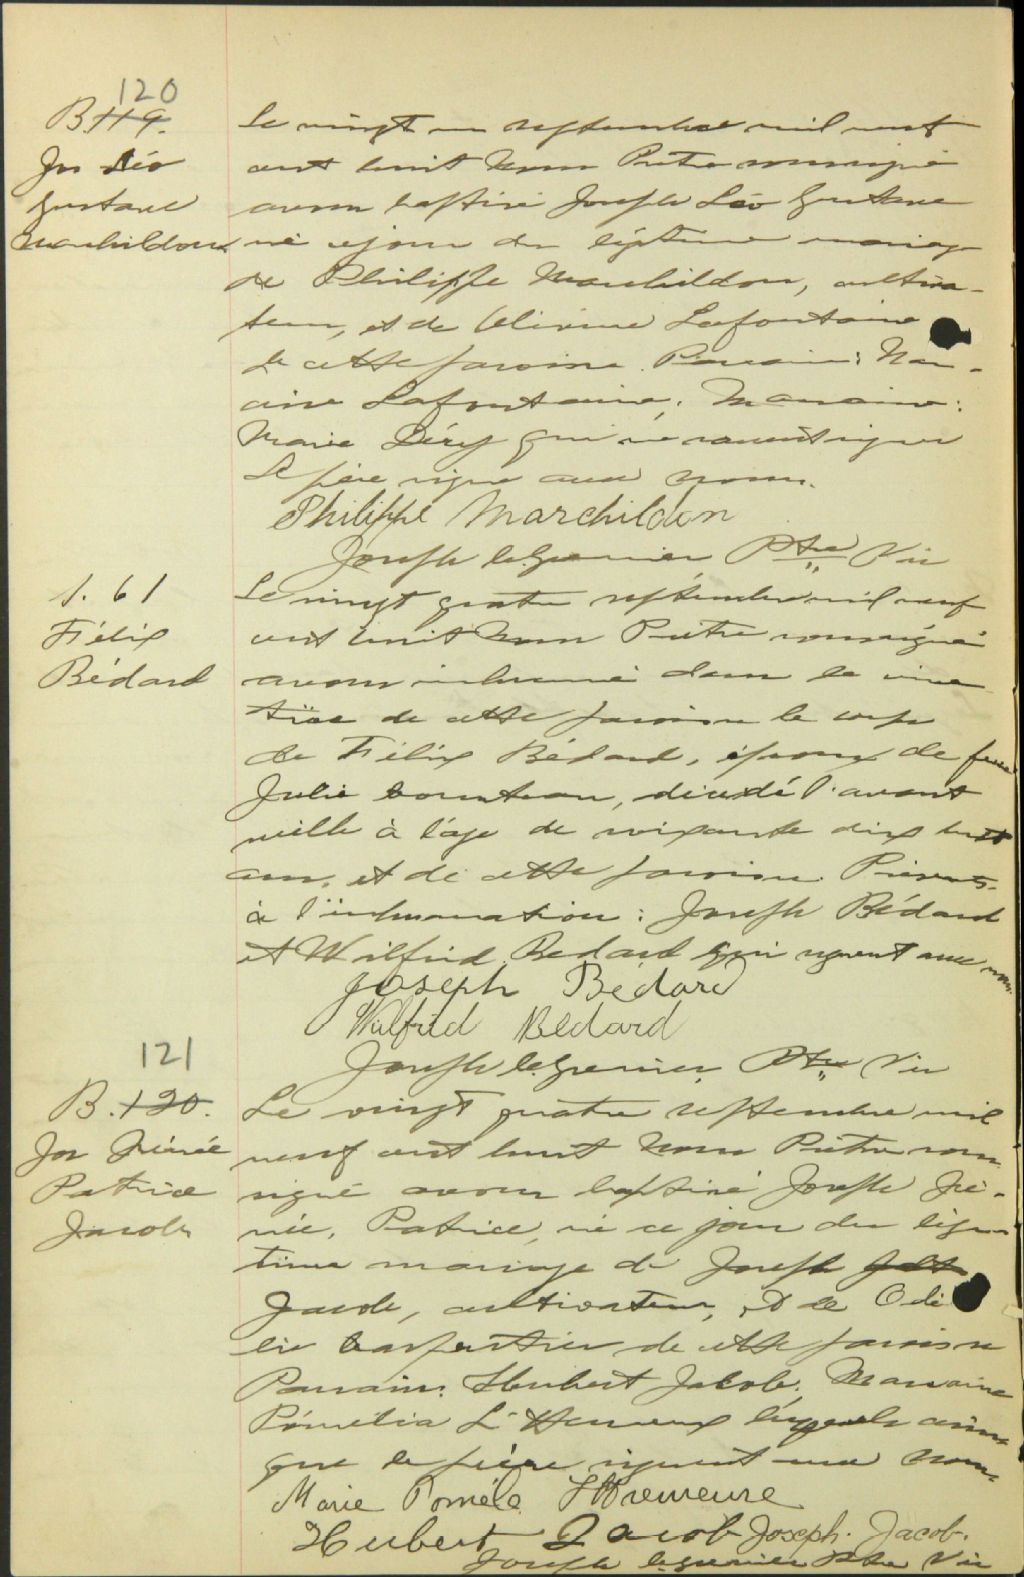 120
B 119.
Jos Léo
Gustave
Marchildon
Le vingt un septembre mil neuf
cent huit Nous Prêtre soussigné
avons baptisé Joseph Léo Gustave
né ce jour du légitime mariage
de Philippe Marchildon, cultiva-
teur, et de Lafontaine
de cette paroisse. Parrain: Nar-
cisse Lafontaine; Marraine:
Marie Déry qui ne savent signer
Le père signe avec nous.
Philippe Marchildon
Joseph Grenier Ptre Vic
S. 61
Félix
Bédard
Le vingt quatre septembre mil neuf
cent huit Nous Prêtre soussigné
avons inhumé dans le cime
tière de cette paroisse le corps
de Félix Bédard, époux de feue
Julie décédé l'avant
veille à l'âge de soixante dix huit
ans, et de cette paroisse. Présents
à l'inhumation: Joseph Bédard
et Wilfrid Bedard qui signent avec nous.
Joseph Bédard
Wilfrid Bédard
Joseph Grenier Ptre Vic
121
B. 120.
Jos Irénée
Patrice
Jacob
Le vingt quatre septembre mil
neuf cent huit Nous Prêtre sous
signé avons baptisé Joseph Iré-
née, Patrice, né ce jour du légi-
time mariage de Joseph
Jacob, cultivateur, et de Odé
lie Carpentier de cette paroisse
Parrain: Hubert Jacob; Marraine
Pomélia L'Heureux lesquels ainsi
que le père signent avec nous
Marie Poméla L'Heureux
Hubert Jacob Joseph. Jacob.
Joseph Grenier Ptre Vic